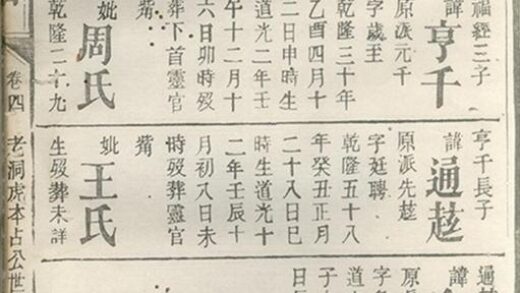 福經三子
諱亨千
原派元千
字歲至
乾隆三十年
乙酉四月十
二日申時生
道光二年壬
午十二月十
六日卯時歿
葬下首靈官
嘴
妣周氏
乾隆二十九
亨千長子
諱通趂
原派先趂
字廷聘
乾隆五十八
年癸丑正月
二十八日巳
時生道光十
二年壬辰十
月初八日未
時歿葬靈官
嘴
妣王氏
生歿葬未詳
諱
原
字
道
子
日
卷四 老洞虎本占公世